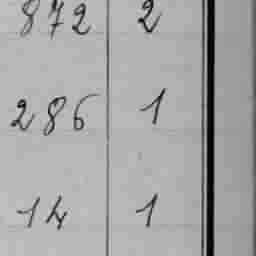 872 2
286 1
14 1